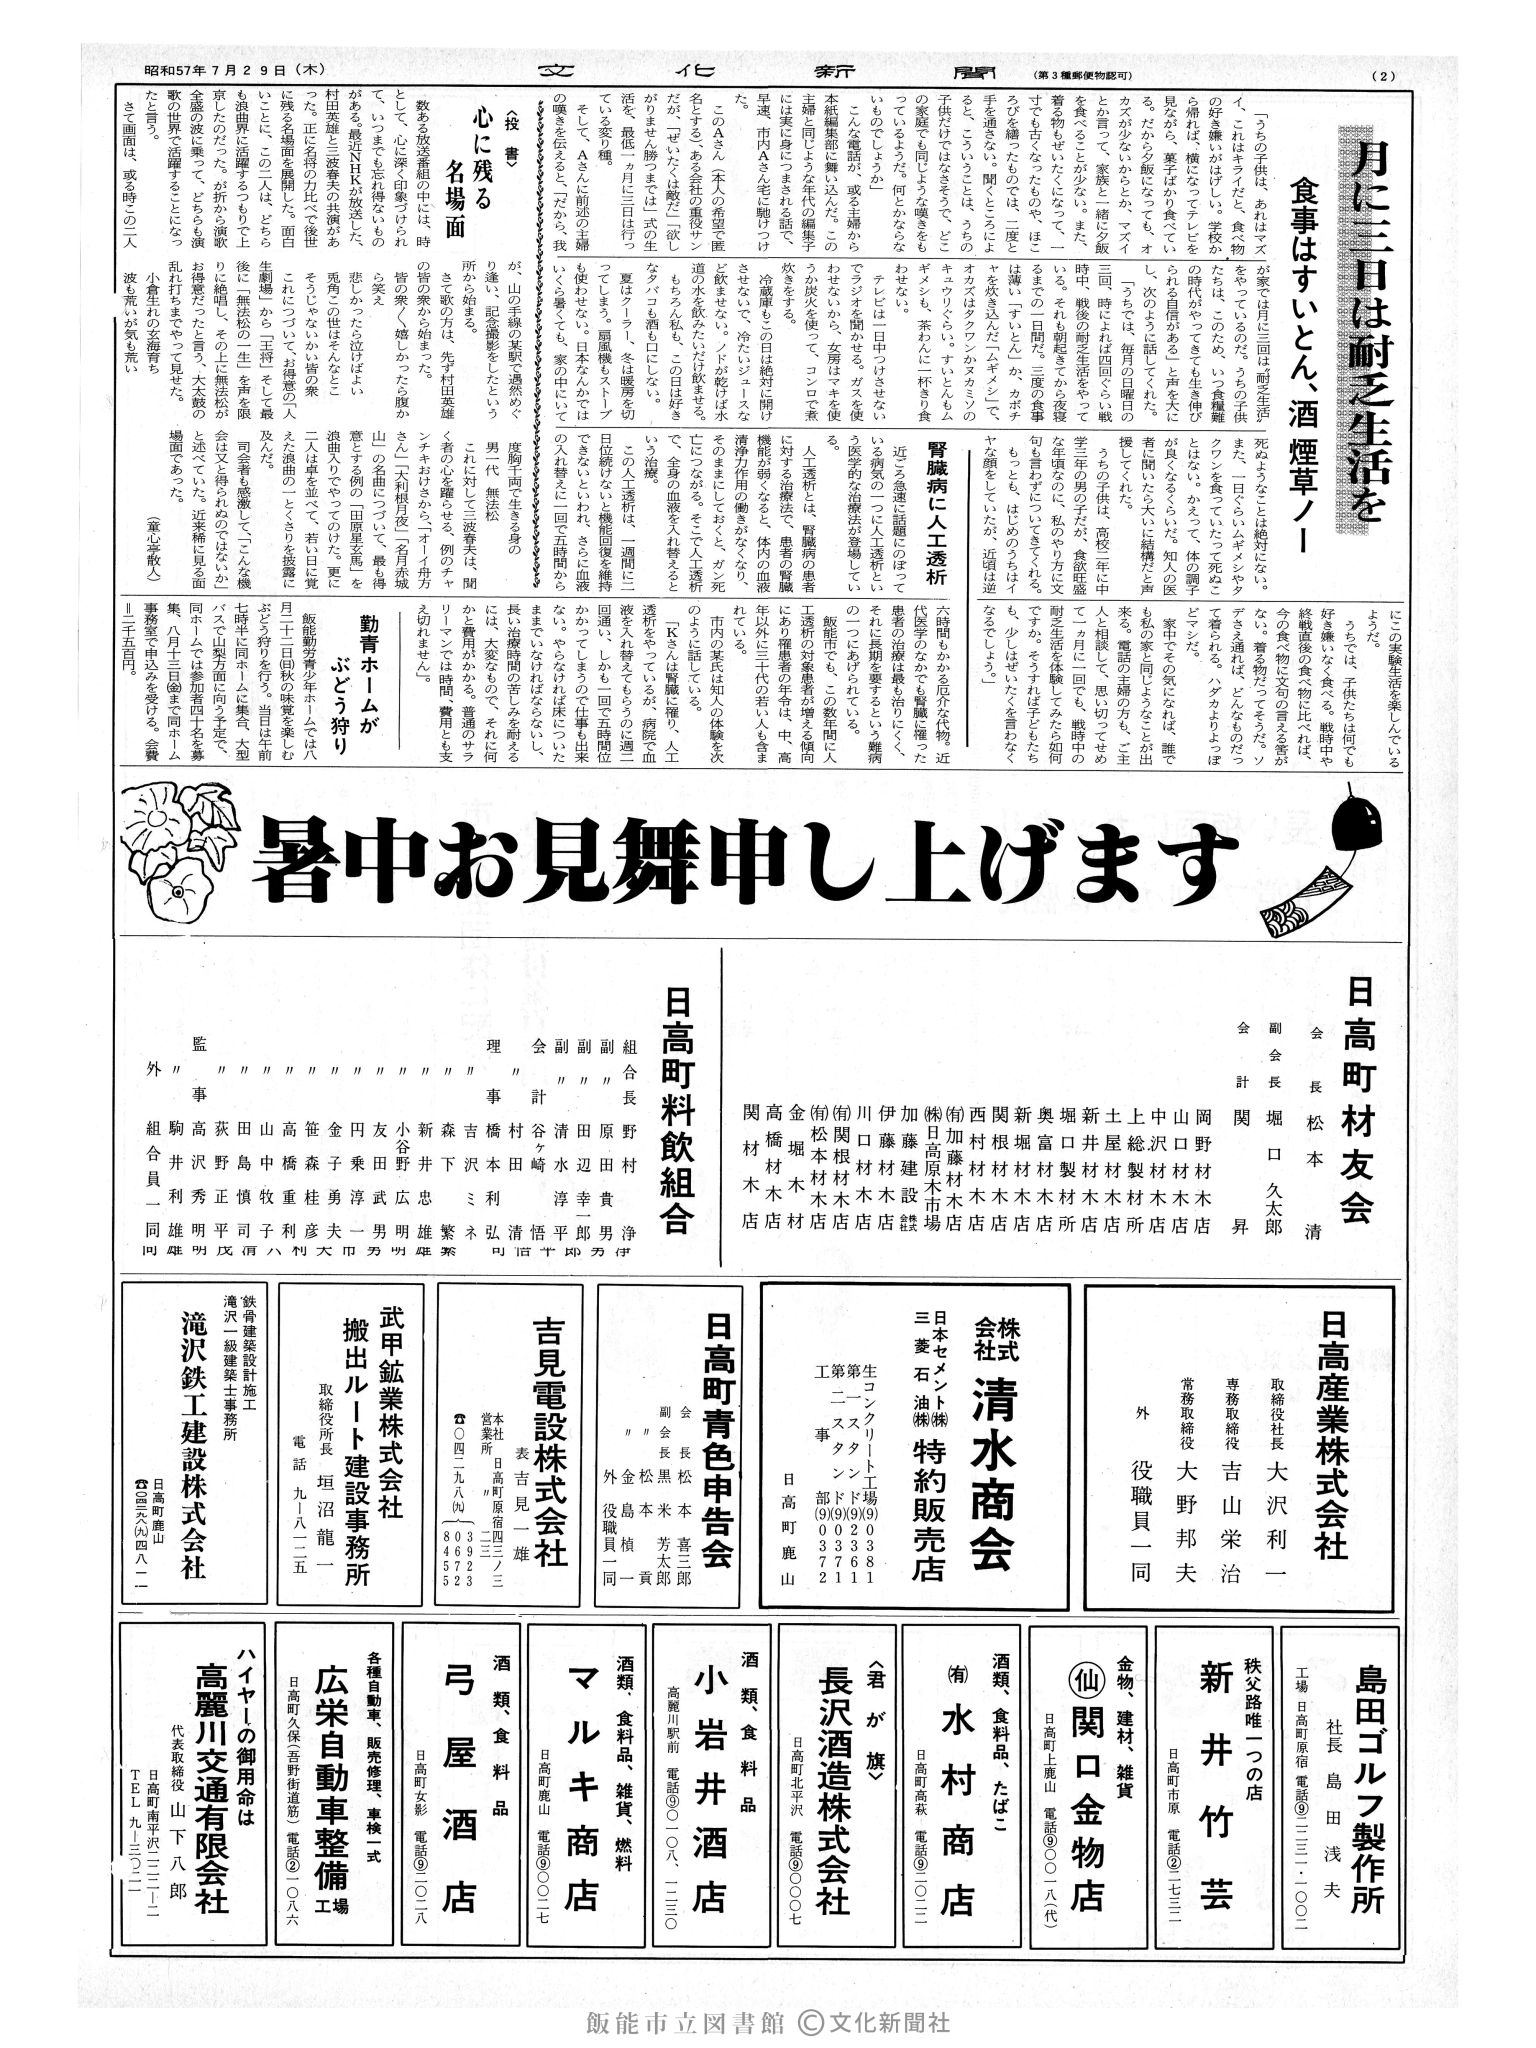 昭和57年7月29日(木)
文化新聞
(第3種郵便物認可)
(2)
月に三日は耐乏生活を
食事はすいとん、酒 煙草ノー
「うちの子供は、あれはマズ
イ、これはキライだと、食べ物
の好き嫌いがはげしい。学校か
ら帰れば、横になってテレビを
見ながら、菓子ばかり食べてい
る。だから夕飯になっても、オ
カズが少ないからとか、マズイ
とか言って、家族と一緒に夕飯
を食べることが少ない。また、
着る物もぜいたくになって、一
寸でも古くなったものや、ほこ
ろびを繕ったものでは、二度と
手を通さない。聞くところによ
ると、こういうことは、うちの
子供だけではなさそうで、どこ
の家庭でも同じような嘆きをも
っているようだ。何とかならな
いものでしょうか」
こんな電話が、或る主婦から
本紙編集部に舞い込んだ。この
主婦と同じような年代の編集子
には実に身につまされる話で、
早速、市内Aさん宅に馳けつけ
た。
このAさん(本人の希望で匿
名とする)、ある会社の重役サン
だが、「ぜいたくは敵だ」「欲し
がりません勝つまでは」式の生
活を、最低一ヵ月に三日は行っ
ている変り種。
そして、Aさんに前述の主婦
の嘆きを伝えると、「だから、我
が家では月に三回は“耐乏生活”
をやっているのだ。うちの子供
たちは、このため、いつ食糧難
の時代がやってきても生き伸び
られる自信がある」と声を大に
し、次のように話してくれた。
「うちでは、毎月の日曜日の
三回、時によれば四回ぐらい戦
時中、戦後の耐乏生活をやって
いる。それも朝起きてから夜寝
るまでの一日間だ。三度の食事
は薄い「すいとん」か、カボチ
ャを炊き込んだ「ムギメシ」で、
オカズはタクワンかヌカミソの
キュウリぐらい。すいとんもム
ギメシも、茶わんに一杯きり食
わせない。
テレビは一日中つけさせない
でラジオを聞かせる。ガスを使
わせないから、女房はマキを使
うか炭火を使って、コンロで煮
炊きをする。
冷蔵庫もこの日は絶対に開け
させないで、冷たいジュースな
ど飲ませない。ノドが乾けば水
道の水を飲みたいだけ飲ませる。
もちろん私も、この日は好き
なタバコも酒も口にしない。
夏はクーラー、冬は暖房を切
ってしまう。扇風機もストーブ
も使わせない。日本なんかでは
いくら暑くても、家の中にいて
死ぬようなことは絶対にない。
また、一日ぐらいムギメシやタ
クワンを食っていたって死ぬこ
とはない。かえって、体の調子
が良くなるくらいだ。知人の医
者に聞いたら大いに結構だと声
援してくれた。
うちの子供は、高校二年に中
学三年の男の子だが、食欲旺盛
な年頃なのに、私のやり方に文
句も言わずについてきてくれる。
もっとも、はじめのうちはイ
ヤな顔をしていたが、近頃は逆
にこの実験生活を楽しんでいる
ようだ。
うちでは、子供たちは何でも
好き嫌いなく食べる。戦時中や
終戦直後の食べ物に比べれば、
今の食べ物に文句の言える筈が
ない。着る物だってそうだ。ソ
デさえ通れば、どんなものだっ
て着られる。ハダカよりよっぽ
どマシだ。
家中でその気になれば、誰で
も私の家と同じようなことが出
来る。電話の主婦の方も、ご主
人と相談して、思い切ってせめ
て一ヵ月に一回でも、戦時中の
耐乏生活を体験してみたら如何
ですか。そうすれば子どもたち
も、少しはぜいたくを言わなく
なるでしょう。」
腎臓病に人工透析
近ごろ急速に話題にのぼって
いる病気の一つに人工透析とい
う医学的な治療法が登場してい
る。
人工透析とは、腎臓病の患者
に対する治療法で、患者の腎臓
機能が弱くなると、体内の血液
清浄力作用の働きがなくなり、
そのままにしておくと、ガン死
亡につながる。そこで人工透析
で、全身の血液を入れ替えると
いう治療。
この人工透析は、一週間に二
日位続けないと機能回復を維持
できないといわれ、さらに血液
の入れ替えに一回で五時間から
六時間もかかる厄介な代物。近
代医学のなかでも腎臓に罹った
患者の治療は最も治りにくく、
それに長期を要するという難病
の一つにあげられている。
飯能市でも、この数年間に人
工透析の対象患者が増える傾向
にあり罹患者の年令は、中、高
年以外に三十代の若い人も含ま
れている。
市内の某氏は知人の体験を次
のように話している。
「Kさんは腎臓に罹り、人工
透析をやっているが、病院で血
液を入れ替えてもらうのに週二
回通い、しかも一回で五時間位
かかってしまうので仕事も出来
ない。やらなければ床についた
ままでいなければならないし、
長い治療時間の苦しみを耐える
には、大変なもので、それに何
かと費用がかかる。普通のサラ
リーマンでは時間、費用とも支
え切れません」。
〈投書〉
心に残る
名場面
数ある放送番組の中には、時
として、心に深く印象づけられ
て、いつまでも忘れ得ないもの
がある。最近NHKが放送した、
村田英雄と三波春夫の共演があ
った。正に名将の力比べで後世
に残る名場面を展開した。面白
いことに、この二人は、どちら
も浪曲界に活躍するつもりで上
京したのだった。が折から演歌
全盛の波に乗って、どちらも演
歌の世界で活躍することになっ
たと言う。
さて画面は、或る時この二人
が、山の手線の某駅で遇然めぐ
り逢い、記念撮影をしたという
所から始まる。
さて歌の方は、先ず村田英雄
の皆の衆から始まった。
皆の衆く、嬉しかったら腹か
ら笑え
悲しかったら泣けばよい
兎角この世はそんなとこ
そうじゃないかい皆の衆
これにつづいて、お得意の「人
生劇場」から「王将」そして最
後に「無法松の一生」を声を限
りに絶唱し、その上に無法松が
お得意だったと言う、大太鼓の
乱れ打ちまでやって見せた。
小倉生れの玄海育ち
波も荒いが気も荒い
度胸千両で生きる身の
男一代 無法松
これに対して三波春夫は、聞
く者の心を躍らせる、例のチャ
ンチキおけさから、「オーイ舟方
さん」「大利根月夜」「名月赤城
山」の名曲につづいて、最も得
意とする例の「田原星玄馬」を
浪曲入りでやってのけた。更に
二人は卓を並べて、若い日に覚
えた浪曲の一とくさりを披露に
及んだ。
司会者も感激して、「こんな機
会は又と得られぬのではないか」
と述べていた。近来稀に見る面
場面であった。
(童心亭散人)
勤青ホームが
ぶどう狩り
飯能勤労青少年ホームでは八
月二十二日(日)秋の味覚を楽しむ
ぶどう狩りを行う。当日は午前
七時半に同ホームに集合、大型
バスで山梨方面に向う予定で、
同ホームでは参加者四十名を募
集、八月十三日(金)まで同ホーム
事務室で申込みを受ける。会費
=二千五百円。
暑中お見舞申し上げます
日高町材友会
会長 松本清
副会長 堀口久太郎
会計 関昇
岡野材木店
山口材木店
中沢材木店
上総製材所
土屋材木店
新井材木店
堀口製材所
奥富材木店
新堀材木店
関根材木店
西村材木店
(有)加藤材木店
(株)日高原木市場
加藤建設株式会社
伊藤材木店
川口材木店
(有)関根材木店
(有)松本材木店
金堀木材
高橋材木店
関材木店
日高町料飲組合
組合長 野村浄
副〃 原田貴男
副〃 田辺幸一郎
副〃 清水淳平
会計 谷ヶ崎悟
〃 村田清
理事 橋本利弘
〃 吉沢ミネ
〃 森下繁
〃 新井忠雄
〃 小谷野広明
〃 友田武男
〃 円乗淳一
〃 金子勇夫
〃 笹森桂彦
〃 高橋重利
〃 山中牧子
〃 田島慎司
〃 荻野正平
監事 高沢秀明
〃 駒井利雄
外 組合員一同
日高産業株式会社
取締役社長 大沢利一
専務取締役 吉山栄治
常務取締役 大野邦夫
外 役職員一同
株式会社 清水商会
日本セメント(株)
三菱石油(株)
特約販売店
生コンクリート工場(9)0381
第一スタンド(9)2361
第二スタンド(9)0371
工事部(9)0372
日高町鹿山
日高町青色申告会
会長 松本喜三郎
副会長 黒米芳太郎
〃 松本貢
〃 金島楨一
外 役職員一同
吉見電設株式会社
代表 吉見一雄
本社 日高町原宿四三ノ三
営業所 〃 二三
☎〇四二九八(九)3923
0672
8455
武甲鉱業株式会社
搬出ルート建設事務所
取締役所長 垣沼龍一
電話 九-八一二五
鉄骨建築設計施工
滝沢一級建築士事務所
滝沢鉄工建設株式会社
日高町鹿山
☎〇四二九八(九)四八一一
島田ゴルフ製作所
社長 島田浅夫
工場 日高町原宿 電話⑨二二三一・一〇〇二
秩父路唯一つの店
新井竹芸
日高町市原 電話②二七三二
金物、建材、雑貨
仙 関口金物店
日高町上鹿山 電話⑨〇〇一八(代)
酒類、食料品、たばこ
(有)水村商店
日高町高萩 電話⑨二〇二二
〈君が旗〉
長沢酒造株式会社
日高町北平沢 電話⑨〇〇〇七
酒類、食料品
小岩井酒店
高麗川駅前 電話⑨〇一〇八、一二三〇
酒類、食料品、雑貨、燃料
マルキ商店
日高町鹿山 電話⑨〇〇二七
酒類、食料品
弓屋酒店
日高町女影 電話⑨二〇二八
各種自動車、販売修理、車検一式
広栄自動車整備工場
日高町久保(吾野街道筋)電話②一〇八六
ハイヤーの御用命は
高麗川交通有限会社
代表取締役 山下八郎
日高町南平沢二二二-二
TEL 九-三〇二一
飯能市立図書館 ©文化新聞社